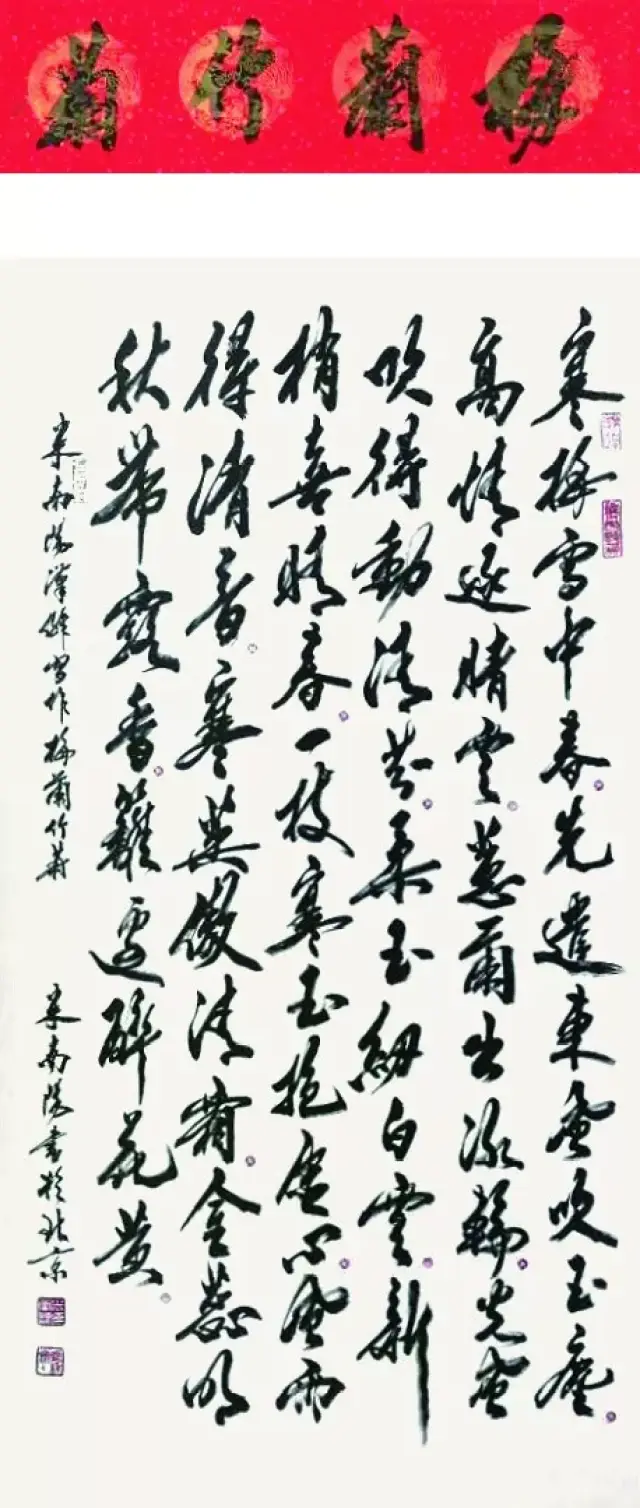 梅蘭竹菊
寒梅雪中春先遣東風吹玉塵
高情逐晴雲蕙蘭出冰輪光
吹得動清芬柔玉紉白雲新
梢喜晴春一枝寒玉抱虛心風雨
得清音寒英傲清霜金蕊明
秋帶露香籬邊醉花黄
米南陽漢俳習作梅蘭竹菊
米南陽書於北京